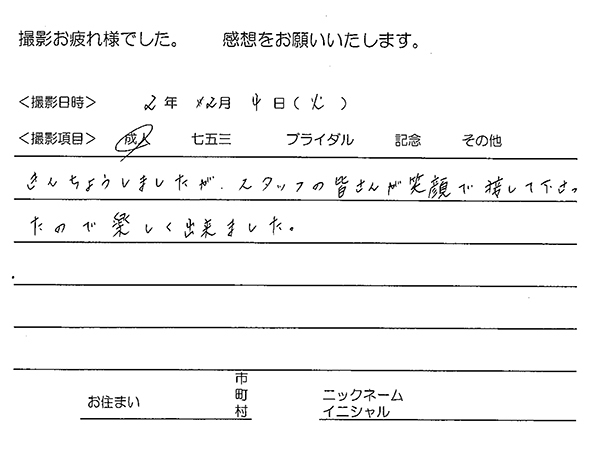 撮影お疲れ様でした。 感想をお願いいたします。
<撮影日時> 2年 2月 4日(火)
<撮影項目> 成人 七五三 ブライダル 記念 その他
きんちょうしましたが、スタッフの皆さんが笑顔で接して下さっ
たので楽しく出来ました。
お住まい 市町村 ニックネーム
イニシャル